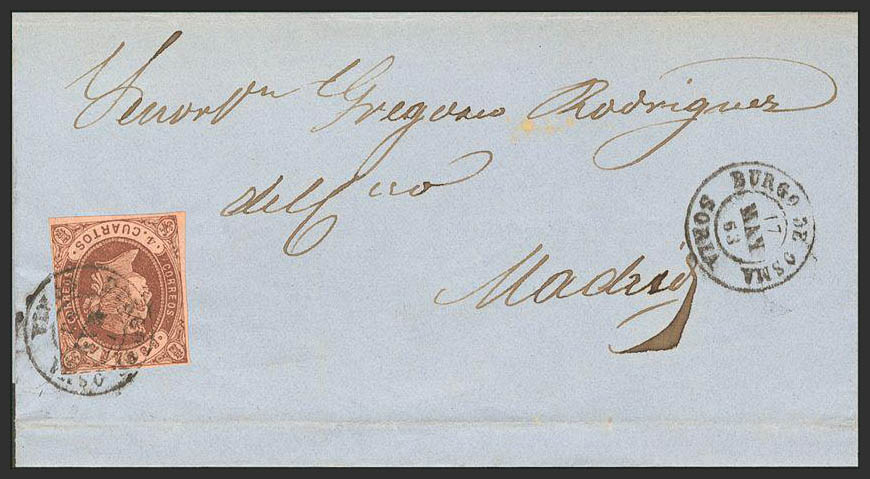 Señor Dn Gregorio Rodriguez
del Cno
Madrid
BURGO DE OSMA
17
MAY
63
SORIA
4 CUARTOS
CORREOS
CORREOS